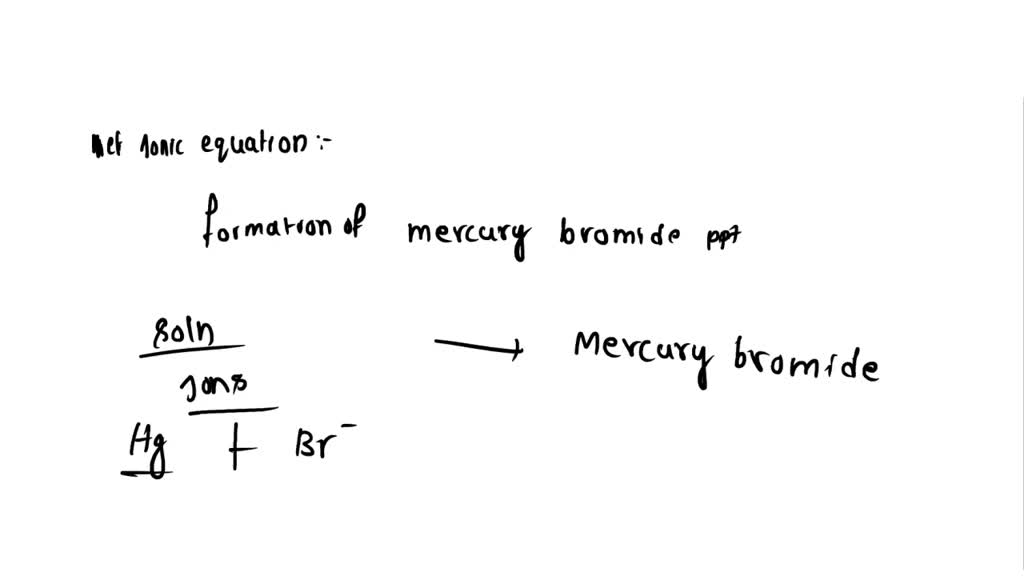 Net Ionic equation :-
formation of mercury bromide ppt
soln → Mercury bromide
Ions
Hg + Br⁻